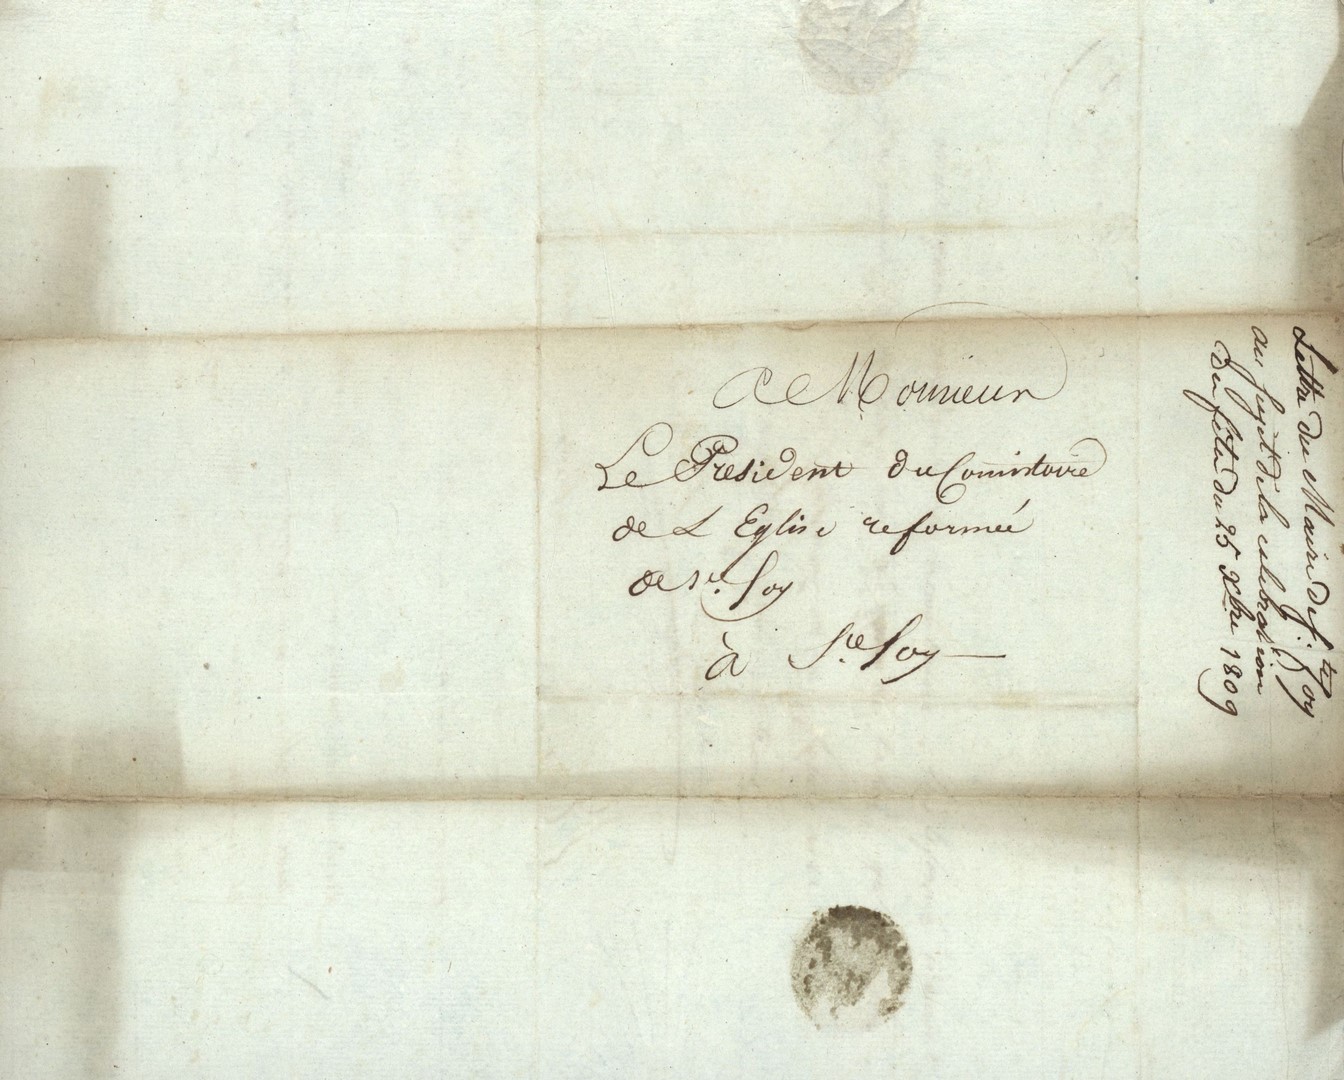 A Monsieur
Le President du Consistoire
de L Eglise reformée
de Ste. foy
à Ste. foy
Lettre du Maire de Ste. foy
au sujet de la celebration
des fêtes du 25 Xbre 1809